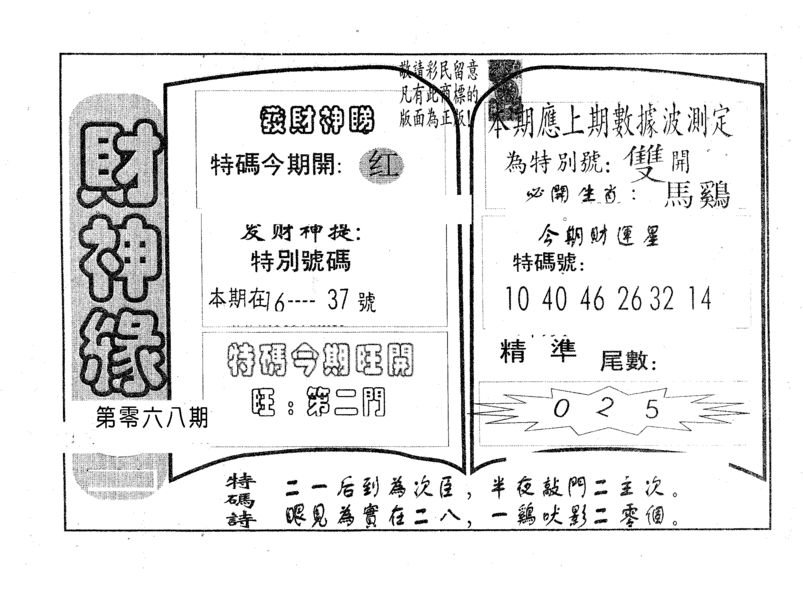 財神緣
第零六八期
敬請彩民留意
凡有此商標的
版面為正版!
發財神睇
特碼今期開: 红
发财神提:
特別號碼
本期在16---- 37號
特碼今期旺開
旺:第二門
本期應上期數據波測定
為特別號: 雙開
必開生肖: 馬鷄
今期財運星
特碼號:
10 40 46 26 32 14
精 準 尾數:
0 2 5
特碼詩
二一后到為次臣,半夜敲門二主次。
眼見為實在二八,一鷄吠影二零個。